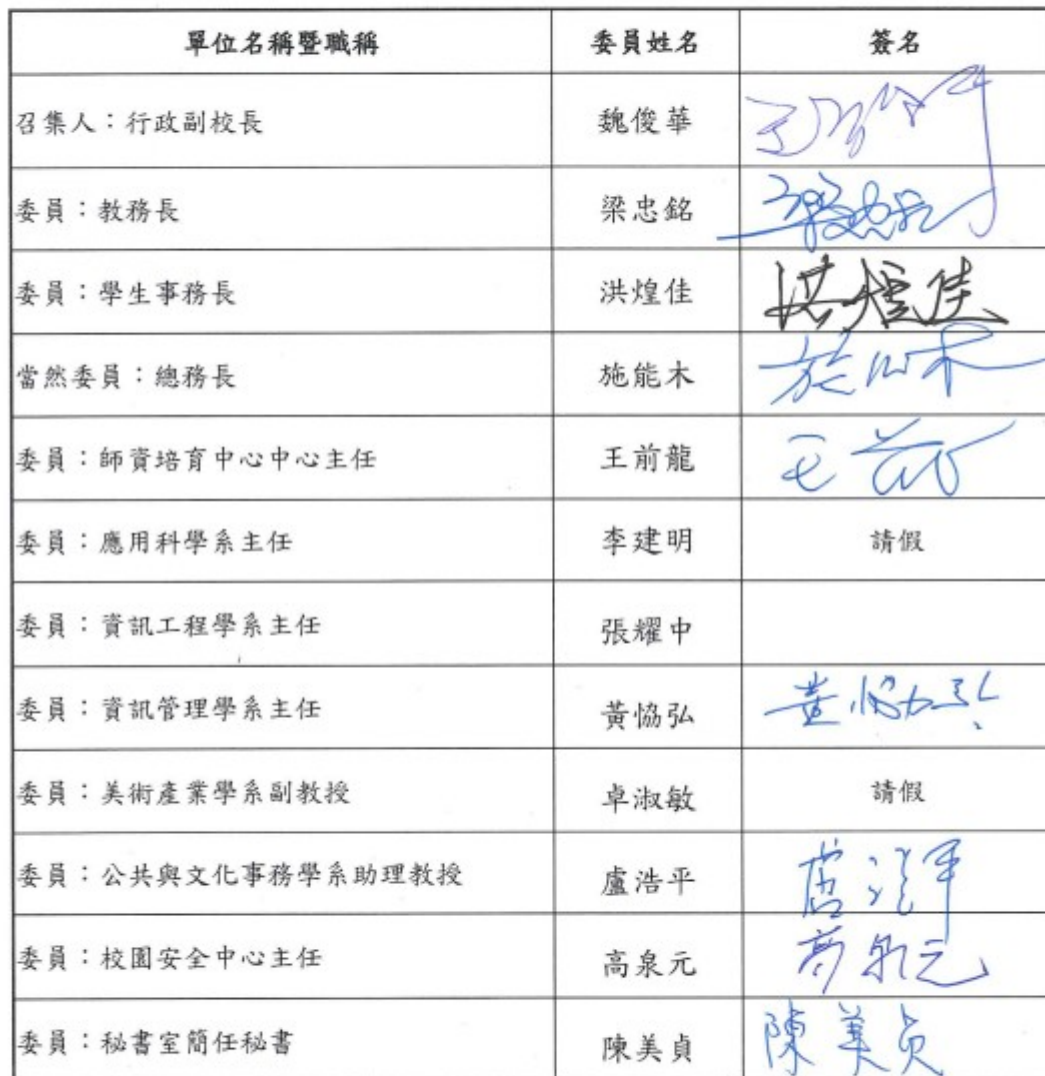 單位名稱暨職稱 委員姓名 簽名
召集人：行政副校長 魏俊華
委員：教務長 梁忠銘
委員：學生事務長 洪煌佳 洪煌佳
當然委員：總務長 施能木
委員：師資培育中心中心主任 王前龍
委員：應用科學系主任 李建明 請假
委員：資訊工程學系主任 張耀中
委員：資訊管理學系主任 黃恊弘 黃恊弘
委員：美術產業學系副教授 卓淑敏 請假
委員：公共與文化事務學系助理教授 盧浩平
委員：校園安全中心主任 高泉元 高泉元
委員：秘書室簡任秘書 陳美貞 陳美貞